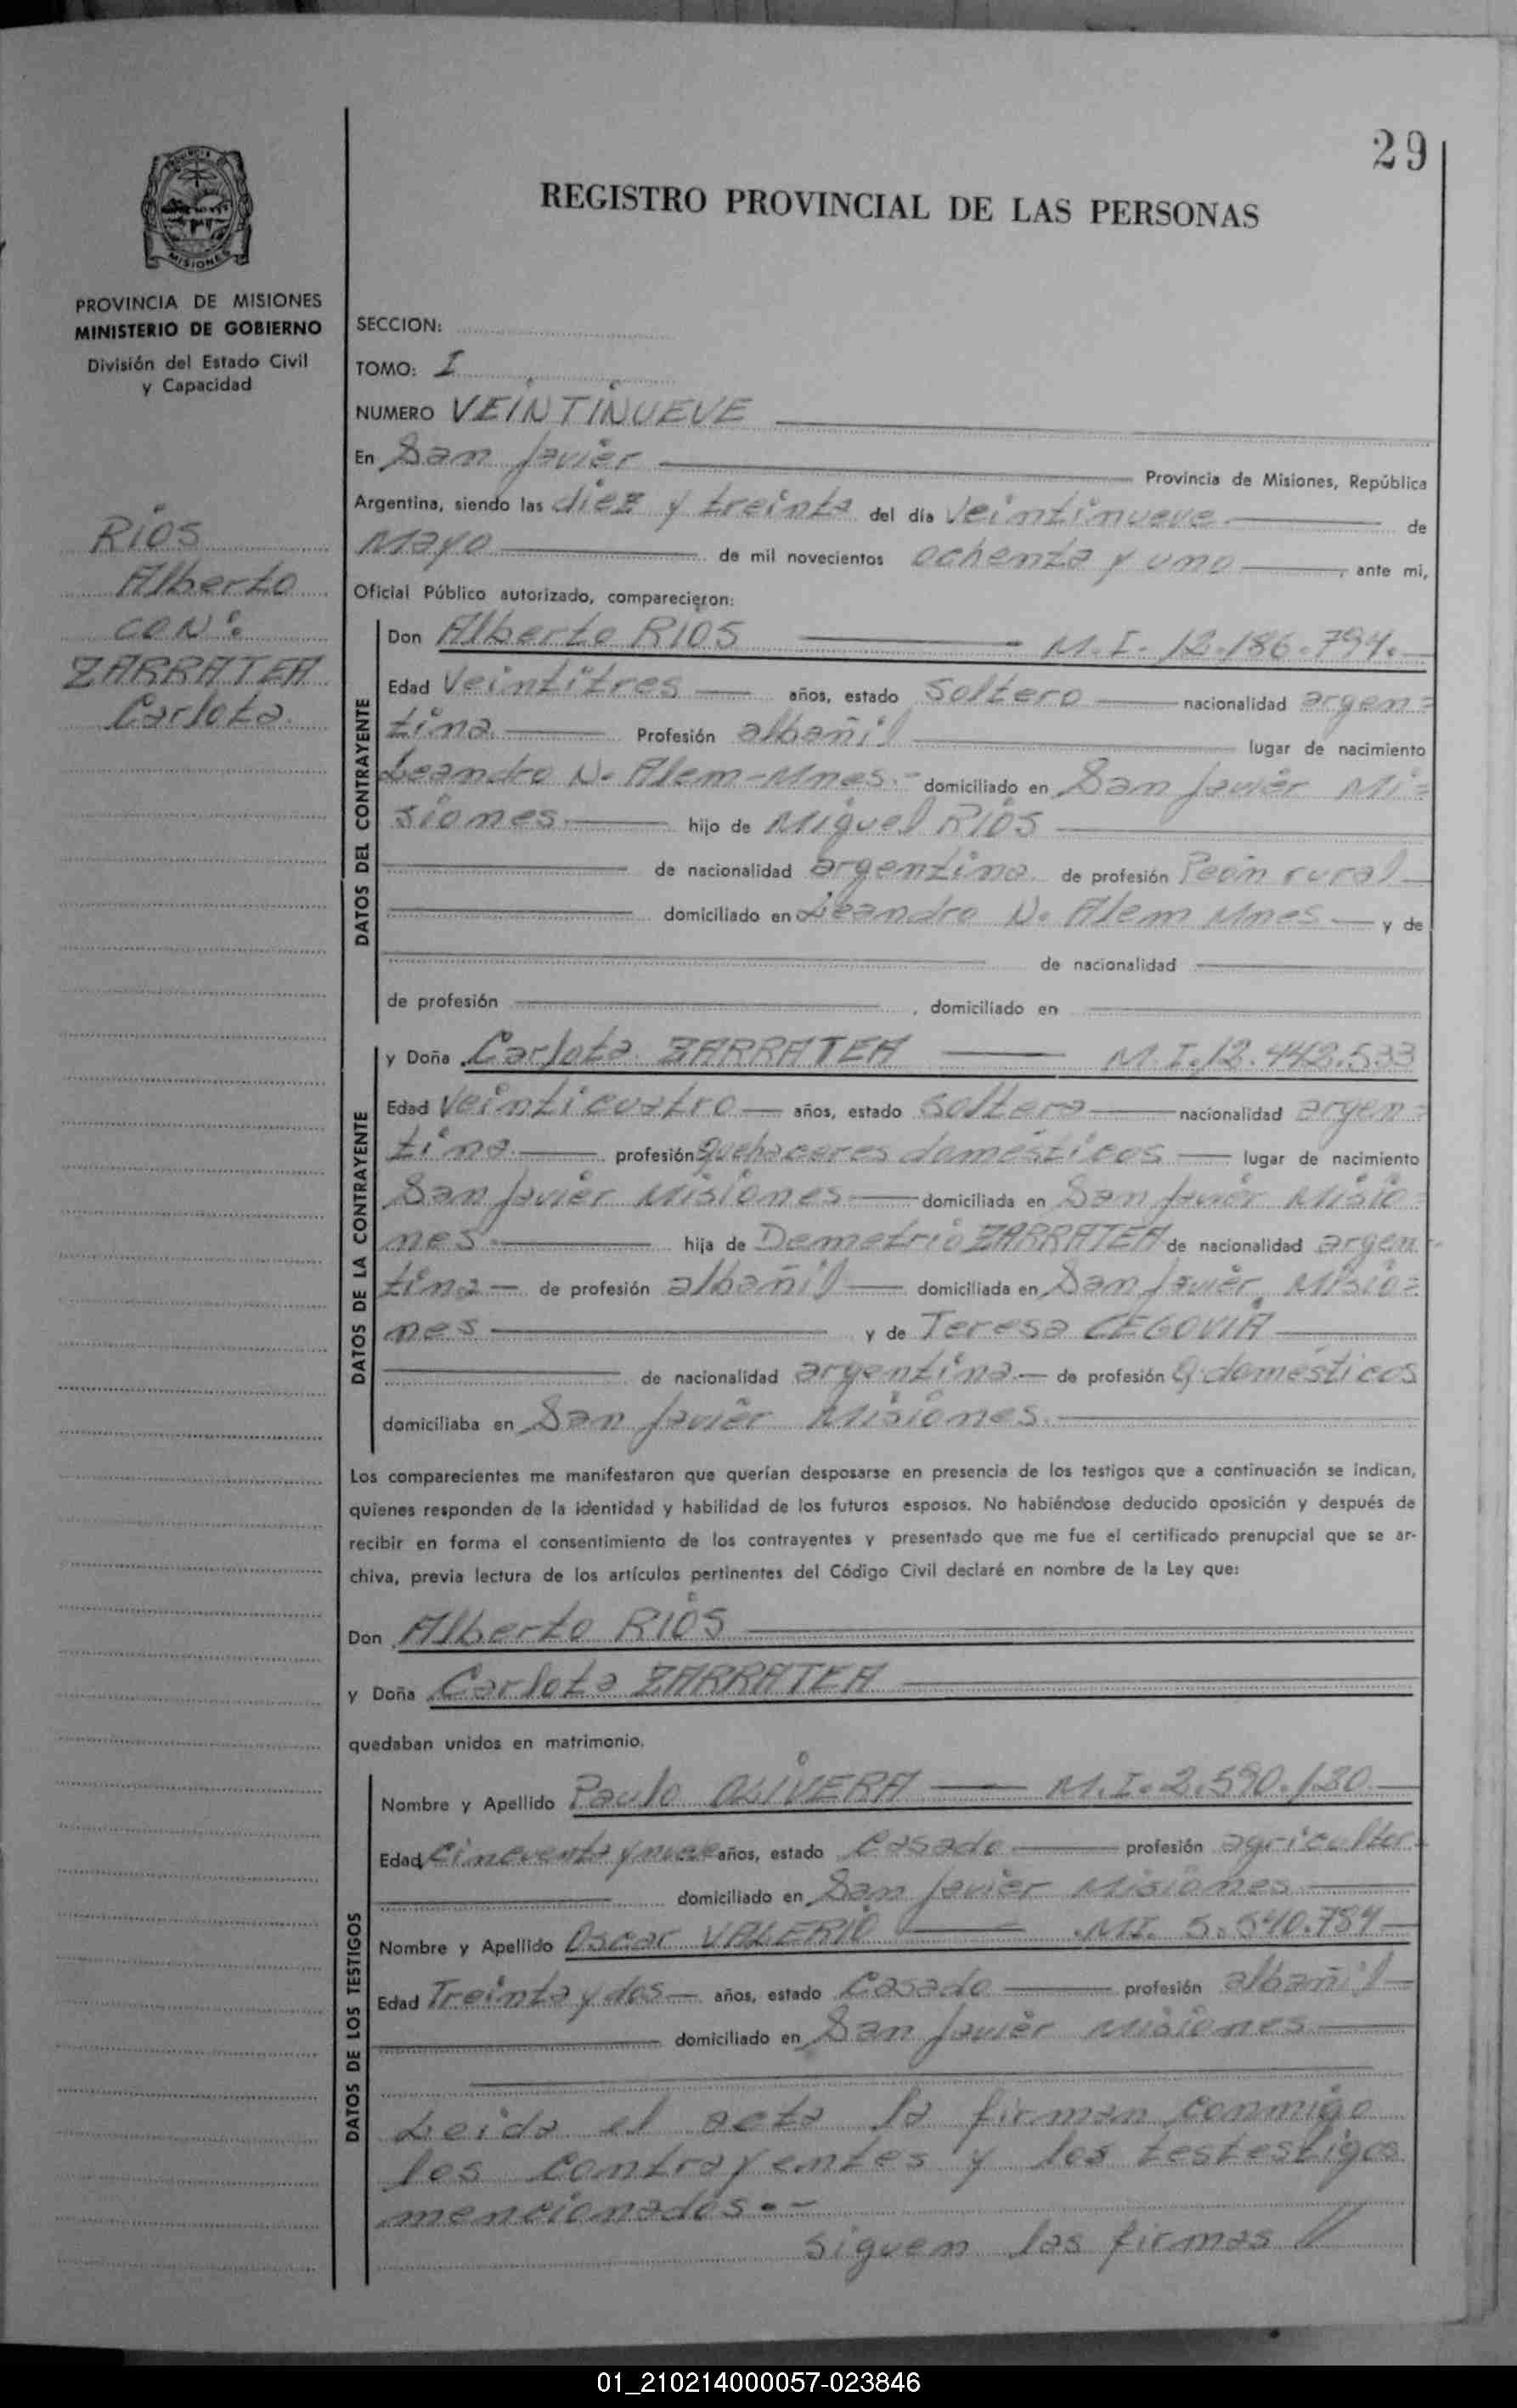 29
REGISTRO PROVINCIAL DE LAS PERSONAS
PROVINCIA DE MISIONES
MINISTERIO DE GOBIERNO
División del Estado Civil
y Capacidad
Ríos
Alberto
CON:
ZARRATEA
Carlota
SECCION:
TOMO: I
NUMERO VEINTINUEVE
En San Javier Provincia de Misiones, República
Argentina, siendo las diez y treinta del día veintinueve de
Mayo de mil novecientos ochenta y uno, ante mi,
Oficial Público autorizado, comparecieron:
DATOS DEL CONTRAYENTE
Don Alberto RIOS M.I. 12.186.794.
Edad Veintitres años, estado soltero nacionalidad argen=
tina. Profesión albañil lugar de nacimiento
Leandro N. Alem-Mnes.- domiciliado en San Javier Mi=
siones hijo de Miguel RIOS
de nacionalidad argentina de profesión Peón rural
domiciliado en Leandro N. Alem Mnes y de
de nacionalidad
de profesión , domiciliado en
DATOS DE LA CONTRAYENTE
y Doña Carlota ZARRATEA M.I. 12.442.533
Edad Veinticuatro años, estado soltera nacionalidad argen=
tina profesión quehaceres domésticos lugar de nacimiento
San Javier Misiones domiciliada en San Javier Misio=
nes hija de Demetrio ZARRATEA de nacionalidad argen-
tina de profesión albañil domiciliada en San Javier Misio=
nes y de Teresa CEGOVIA
de nacionalidad argentina de profesión Q. domésticos
domiciliaba en San Javier Misiones.
Los comparecientes me manifestaron que querían desposarse en presencia de los testigos que a continuación se indican,
quienes responden de la identidad y habilidad de los futuros esposos. No habiéndose deducido oposición y después de
recibir en forma el consentimiento de los contrayentes y presentado que me fue el certificado prenupcial que se ar-
chiva, previa lectura de los artículos pertinentes del Código Civil declaré en nombre de la Ley que:
Don Alberto RIOS
y Doña Carlota ZARRATEA
quedaban unidos en matrimonio.
DATOS DE LOS TESTIGOS
Nombre y Apellido Paulo OLIVERA M.I. 2.590.120
Edad Cincuenta y nueve años, estado Casado profesión agricultor
domiciliado en San Javier Misiones
Nombre y Apellido Oscar VALERIO MI. 5.540.784
Edad Treinta y dos años, estado Casado profesión albañil
domiciliado en San Javier Misiones
Leida el acta la firman conmigo
los contrayentes y los testestigos
mencionados.-
siguen las firmas //
01_210214000057-023846